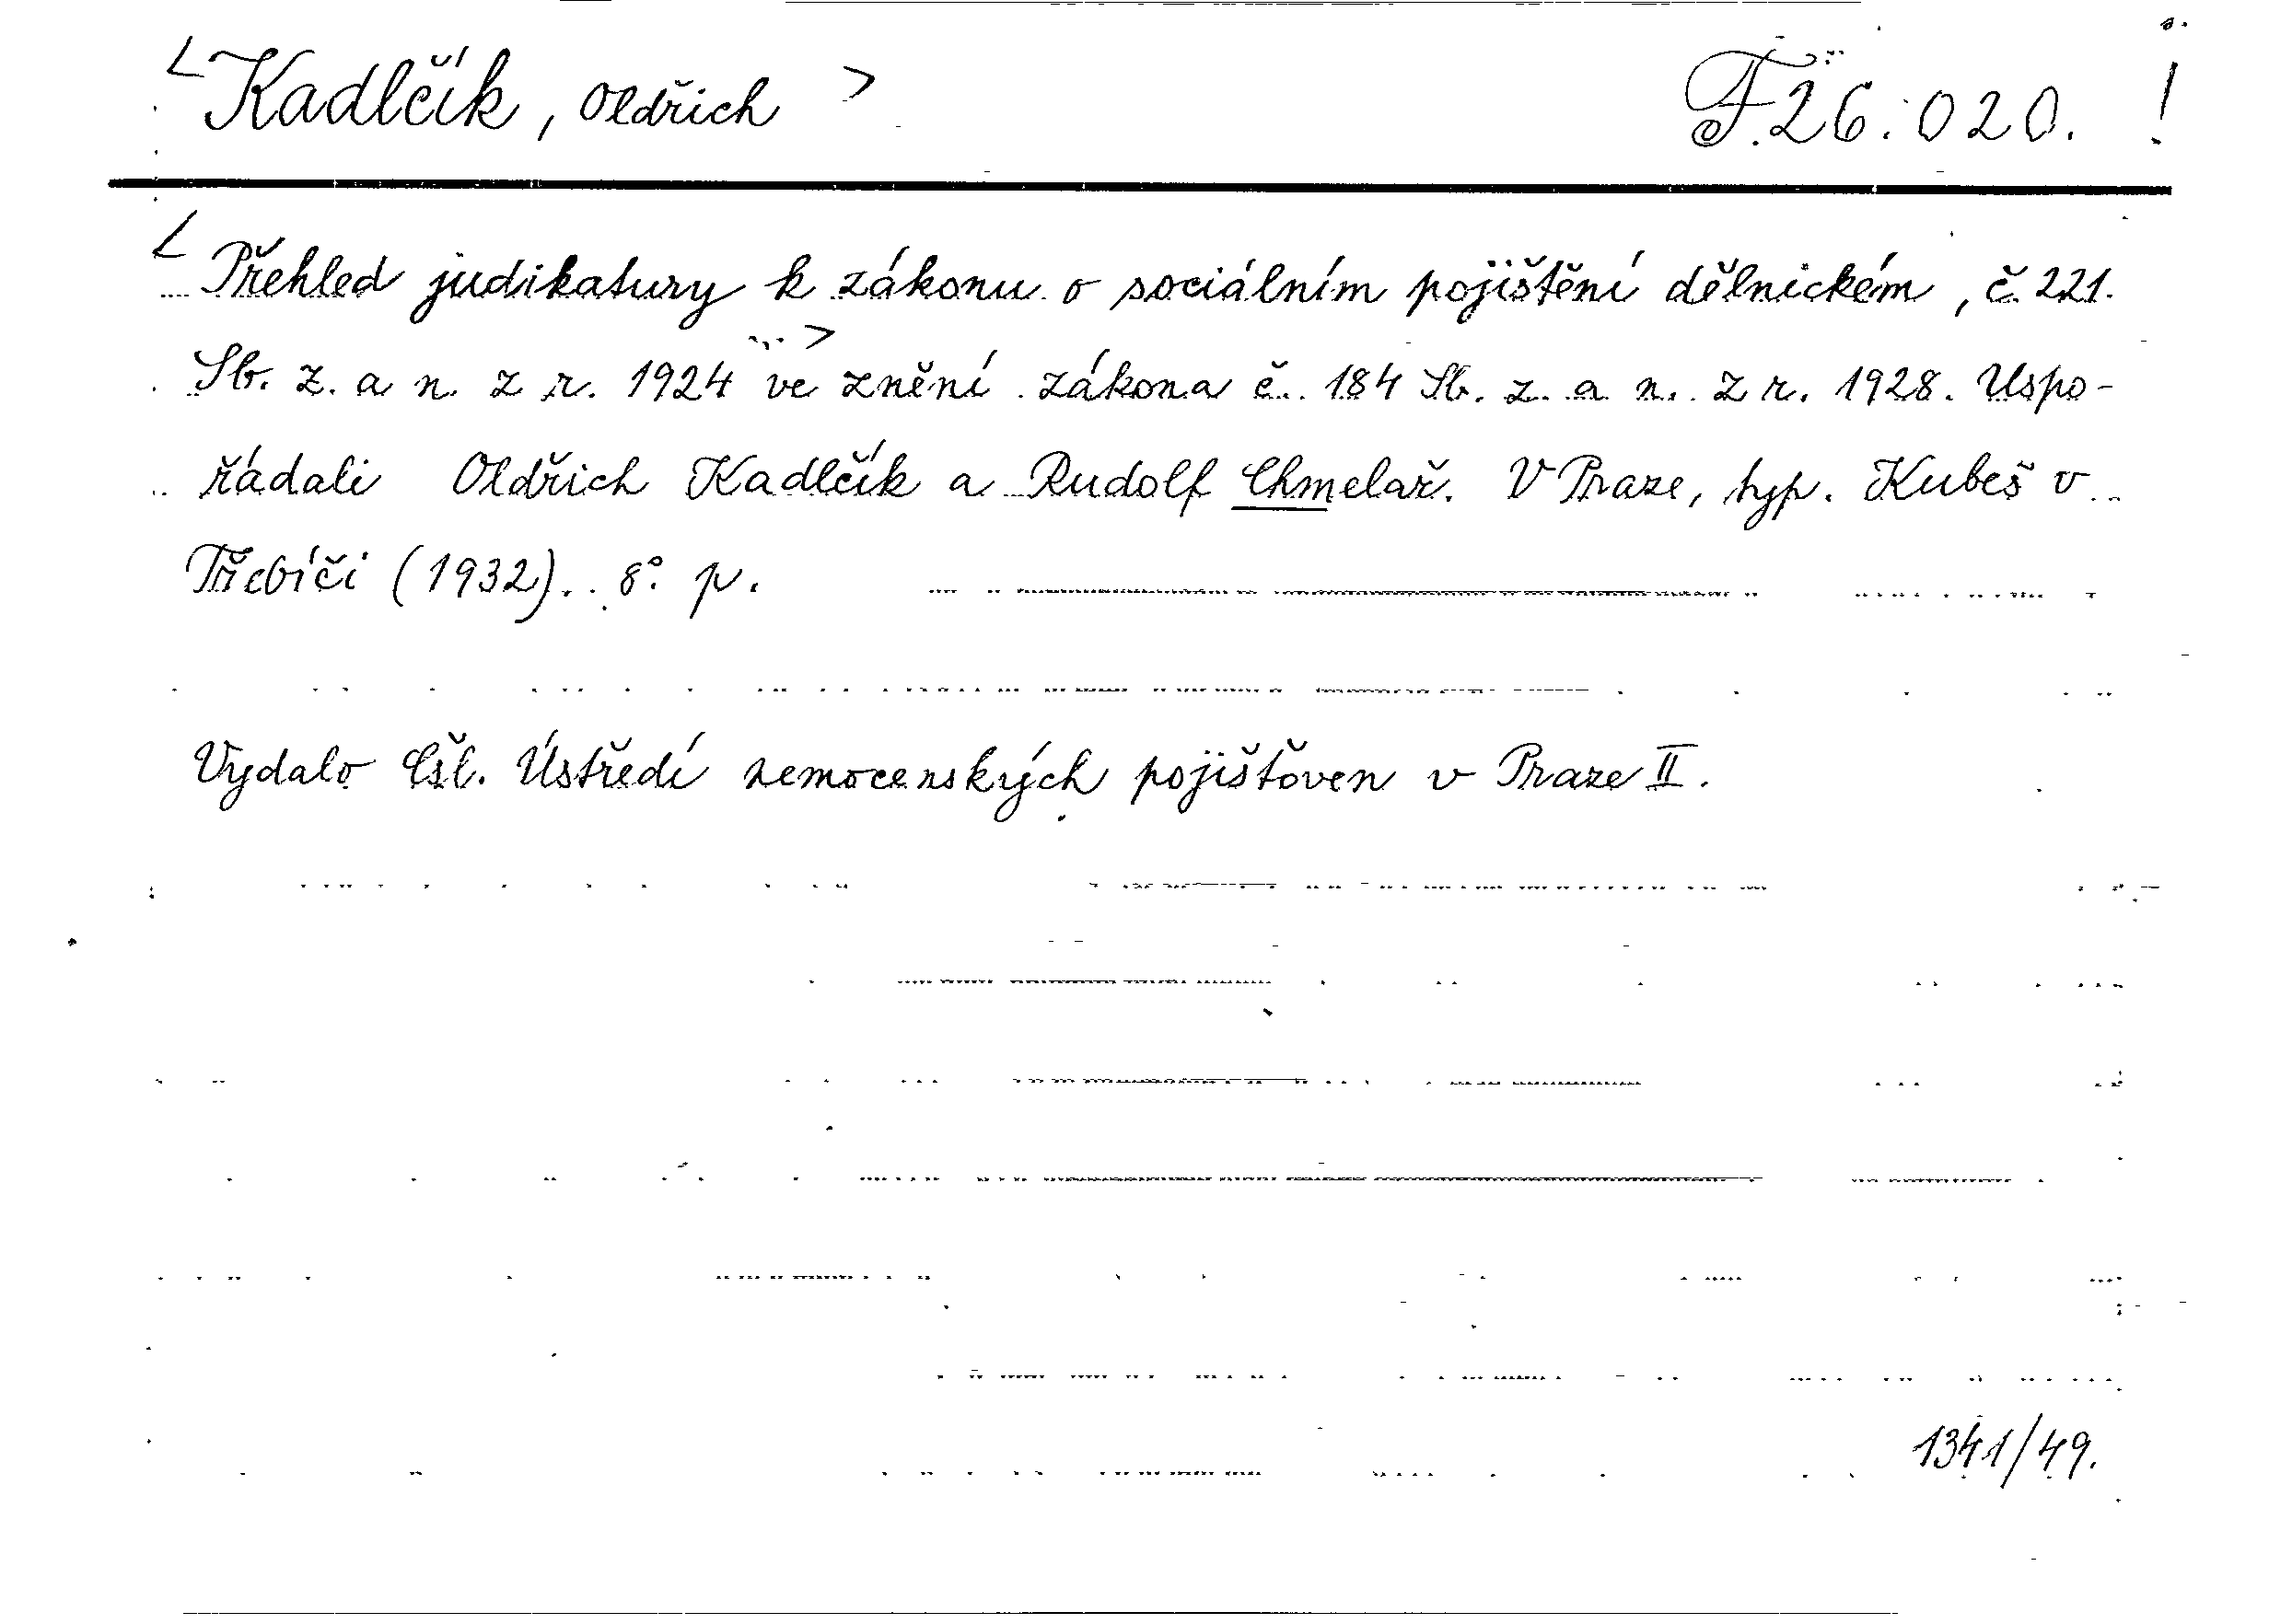 < Kadlčík, Oldřich > F.26.020. !
< Přehled judikatury k zákonu o sociálním pojištění dělnickém, č. 221.
Sb. z. a n. z r. 1924 ...> ve znění zákona č. 184 Sb. z. a n. z r. 1928. Uspo-
řádali Oldřich Kadlčík a Rudolf Chmelař. V Praze, typ. Kubeš v
Třebíči (1932). 8°. p.
Vydalo Čsl. Ústředí nemocenských pojišťoven v Praze II.
1341/49.